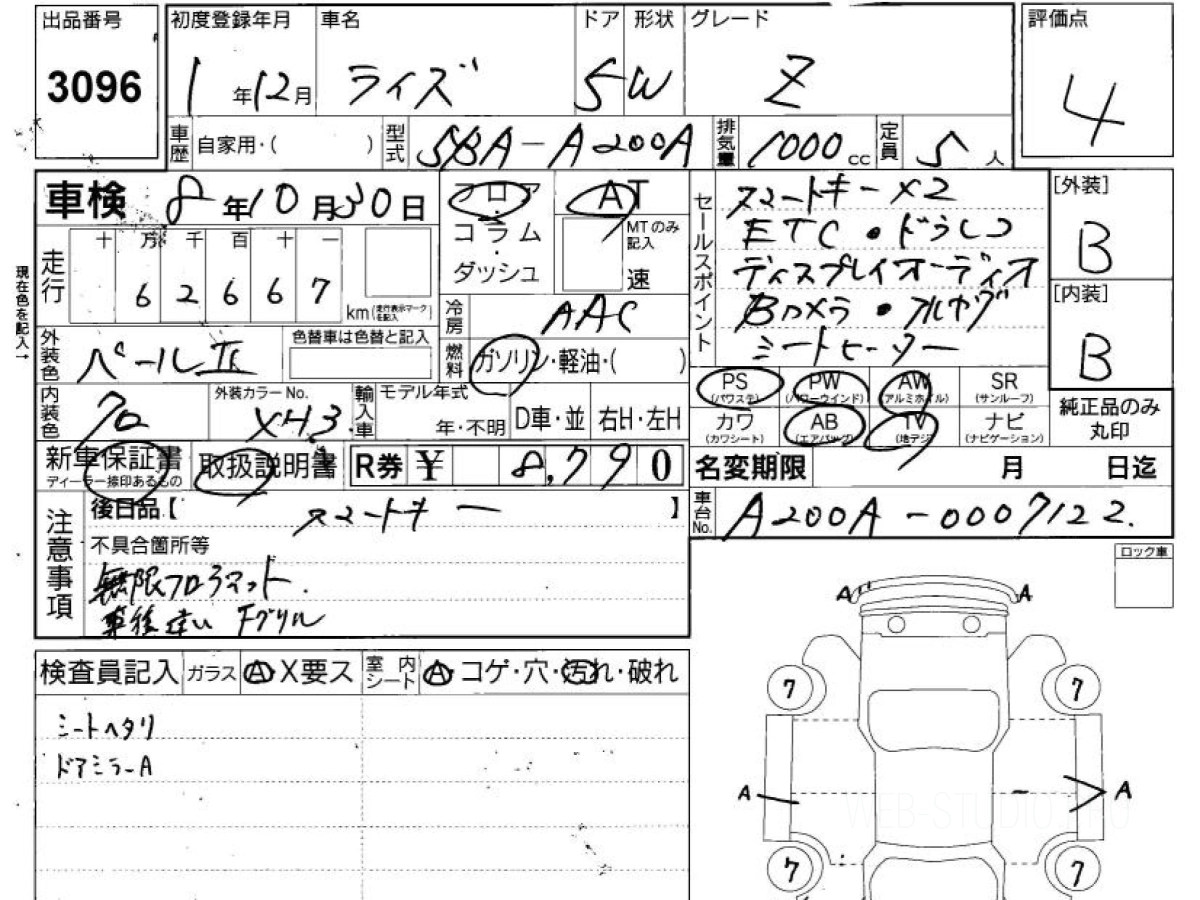 出品番号 初度登録年月 車名 ドア 形状 グレード 評価点
3096 1年12月 ライズ 5 W Z 4
車歴 自家用・( ) 型式 5BA-A200A 排気量 1000cc 定員 5人
車検 8年10月30日 フロア AT セールスポイント スマートキー×2 [外装]
コラム MTのみ記入 ETC・ドラレコ B
走行 十 万 千 百 十 一 ダッシュ 速 ディスプレイオーディオ
6 2 6 6 7 km (走行表示マークを記入) 冷房 AAC Bカメラ・フルセグ [内装]
現在色を記入→
外装色 パールII 色替車は色替と記入 燃料 ガソリン・軽油・( ) シートヒーター B
PS (パワステ) PW (パワーウインド) AW (アルミホイル) SR (サンルーフ)
内装色 クロ 外装カラーNo. X43 輸入車 モデル年式 年・不明 D車・並 右H・左H カワ (カワシート) AB (エアバッグ) TV (地デジ) ナビ (ナビゲーション) 純正品のみ丸印
新車保証書 ディーラー捺印あるもの 取扱説明書 R券 ¥ 8,790 名変期限 月 日迄
注意事項 後日品【 スマートキー 】 車台No. A200A-0007122.
不具合箇所等 ロック車
無限フロアマット.
車後違い Fグリル
検査員記入 ガラス A・X要ス 室内シート A・コゲ・穴・汚れ・破れ
シートヘタリ
ドアミラーA
A A
7 7
A A
WEB-STUDIO.PRO
7 7